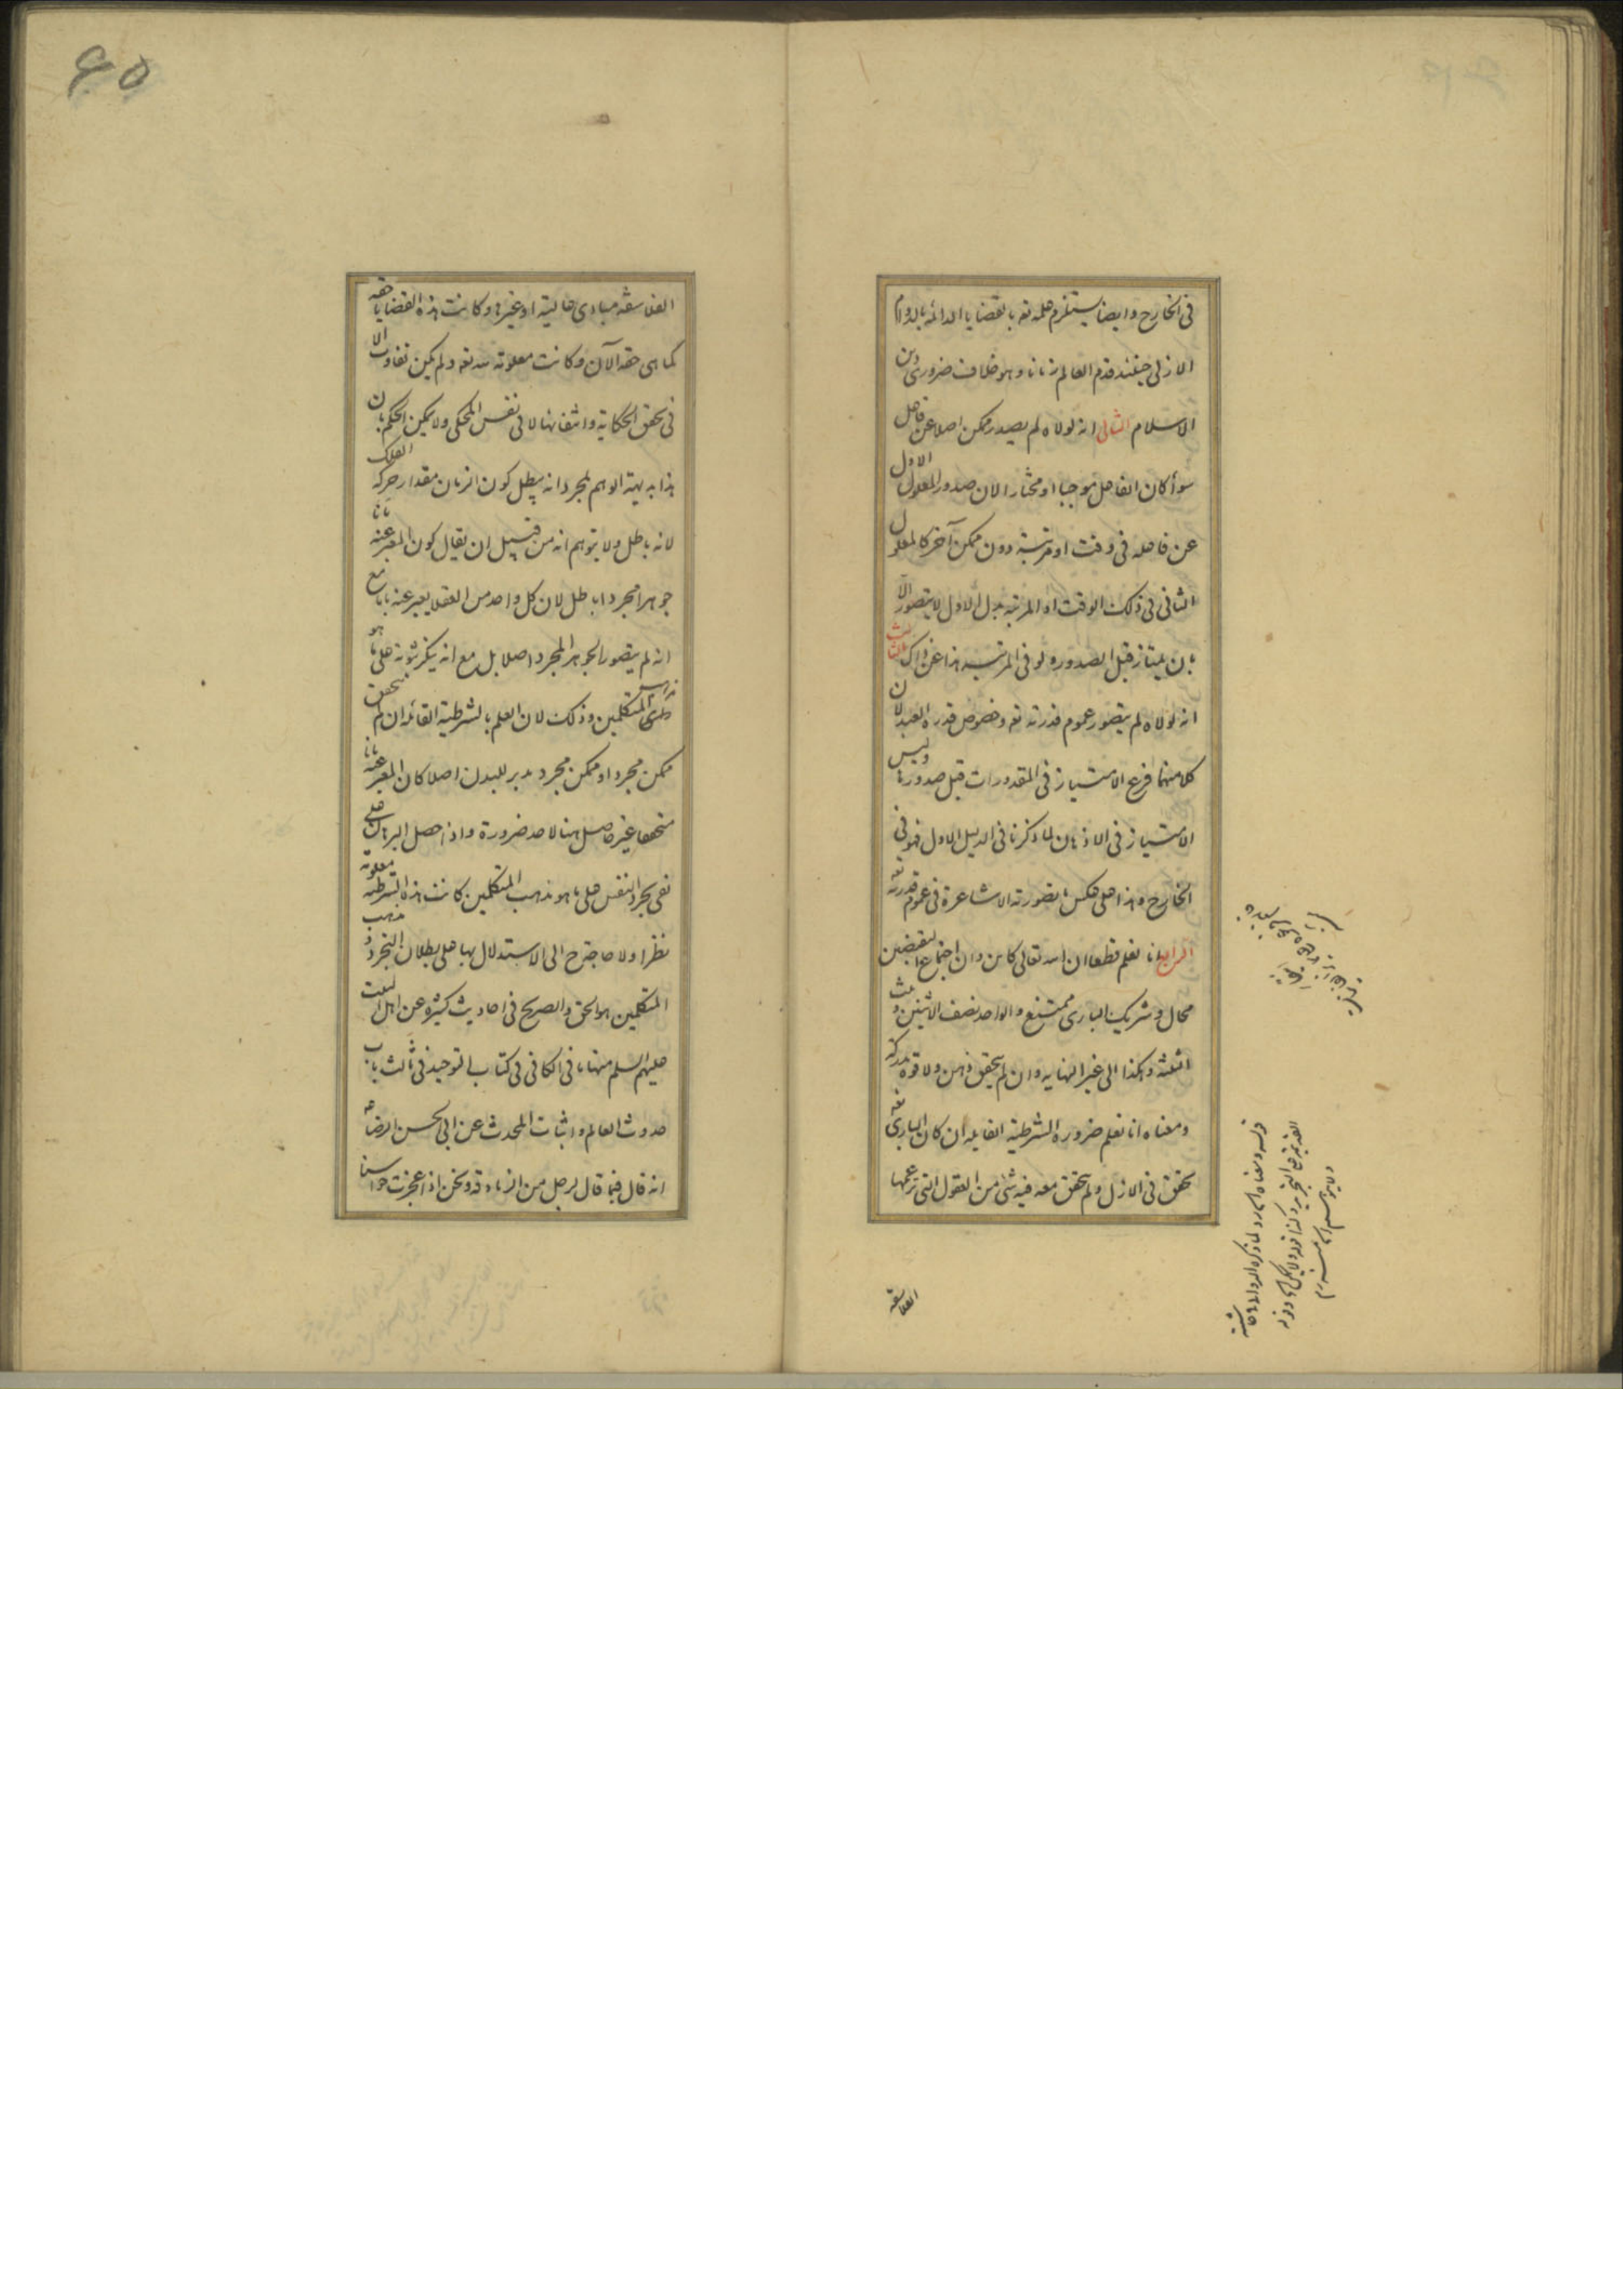 في الخارج وايضا يستلزم علمه تع بالقضايا الدائمه بالدوام
الازلي حينئذ قدم العالم زمانا وهو خلاف ضروري دين
الاسلام الثاني انه لولاه لم يصدر ممكن اصلا عن فاعل
سوأ كان الفاعل موجبا او مختارا لان صدور المعلول الاول
عن فاعله في وقت او مرتبة دون ممكن آخر كالمعلول
الثاني في ذلك الوقت او المرتبه بدل الاول لا يتصور الا
بان يمتاز قبل الصدور ولو في المرتبه هذا عن ذاك الثالث
انه لولاه لم يتصور عموم قدرته تع وخصوص قدره العبد لان
كلا منهما فرع الامتياز في المقدورات قبل صدورها وليس
الامتياز في الاذهان لما ذكرنا في الدليل الاول فهو في
الخارج وهذا على عكس ما تصورته الاشاعرة في عموم قدرته تع
الرابع انا نعلم قطعا ان الله تعالى كائن وان اجتماع النقيضين
محال وشريك الباري ممتنع والواحد نصف الاثنين وثلث
الثلثه وهكذا الى غير النهايه وان لم يتحقق ذهن ولا قوة مدركة
ومعناه انا نعلم ضرورة الشرطية القايله ان كان الباري تع
تحقق في الازل ولم يتحقق معه فيه شئ من العقول التي تزعمها
الفلاسفة
الفلاسفة مبادي عالية او غيرها وكانت هذه القضايا حقه
كما هي حقه الآن وكانت معلومة لله تع ولم يكن تفاوت الا
في تحقق الحكاية وانتفائها لا في نفس المحكي ولا يمكن الحكم بان
هذا بديهة الوهم لمجرد انه يبطل كون الزمان مقدار حركه الفلك
لانه باطل ولا يتوهم انه من قبيل ان يقال كون المعبر عنه بانا
جوهرا مجردا باطل لان كل واحد من العقلا يعبر عنه بانا مع
انه لم يتصور الجوهر المجرد اصلا بل مع انه ينكر ثبوته على ما هو
المتكلمين وذلك لان العلم بالشرطية القائله ان لم يتحقق
ممكن مجرد او ممكن مجرد مدبر للبدن اصلا كان المعبر عنه بانا
متحققا غير حاصل هنا لاحد ضرورة واذا حصل البرهان على
نفي تجرد النفس على ما هو مذهب المتكلمين كانت هذه الشرطيه معلومة
نظرا ولا حاجة ح الى الاستدلال بها على بطلان التجرد ومذهب
المتكلمين هو الحق والصريح في احاديث كثيره عن اهل البيت
عليهم السلم منها ما في الكافي في كتاب التوحيد في ثالث باب
حدوث العالم واثبات المحدث عن ابي الحسن الرضا ع
انه قال فيما قال لرجل من الزنادقه ونحن اذا عجزت حواسنا